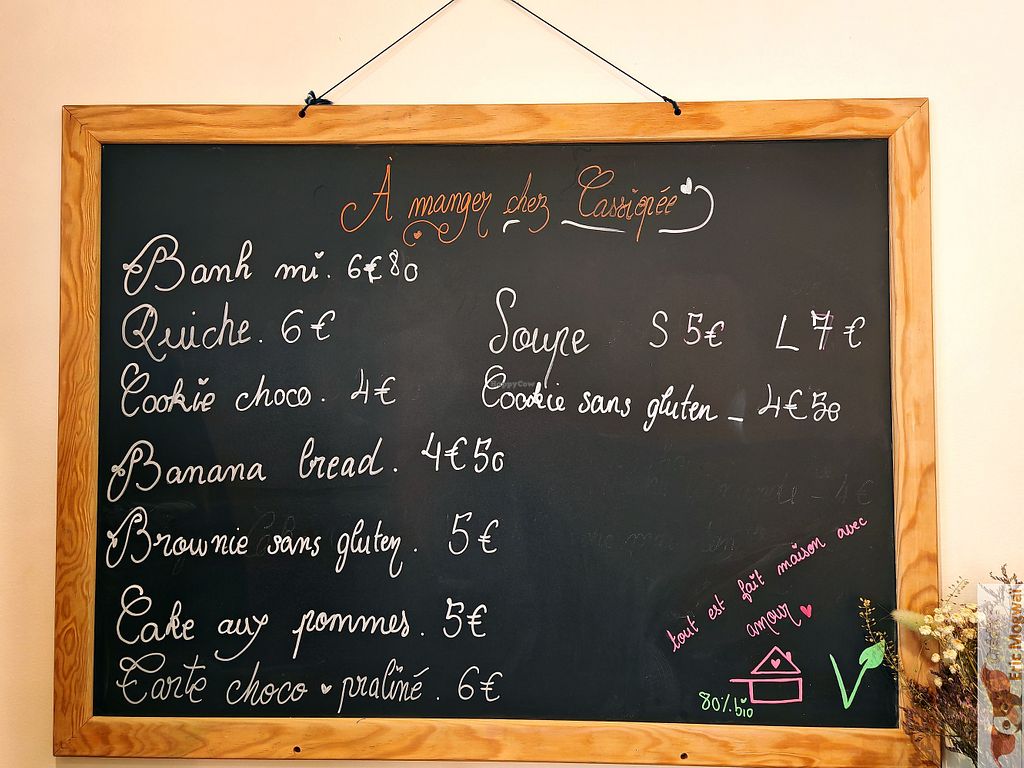 À manger chez Cassiopée
Banh mi. 6€80
Quiche. 6€
Soupe S 5€ L 7€
Cookie choco. 4€
Cookie sans gluten - 4€50
Banana bread. 4€50
Brownie sans gluten. 5€
Cake aux pommes. 5€
Tarte choco praliné. 6€
tout est fait maison avec
amour
80% bio
V
HappyCow
Eric Mogwaii